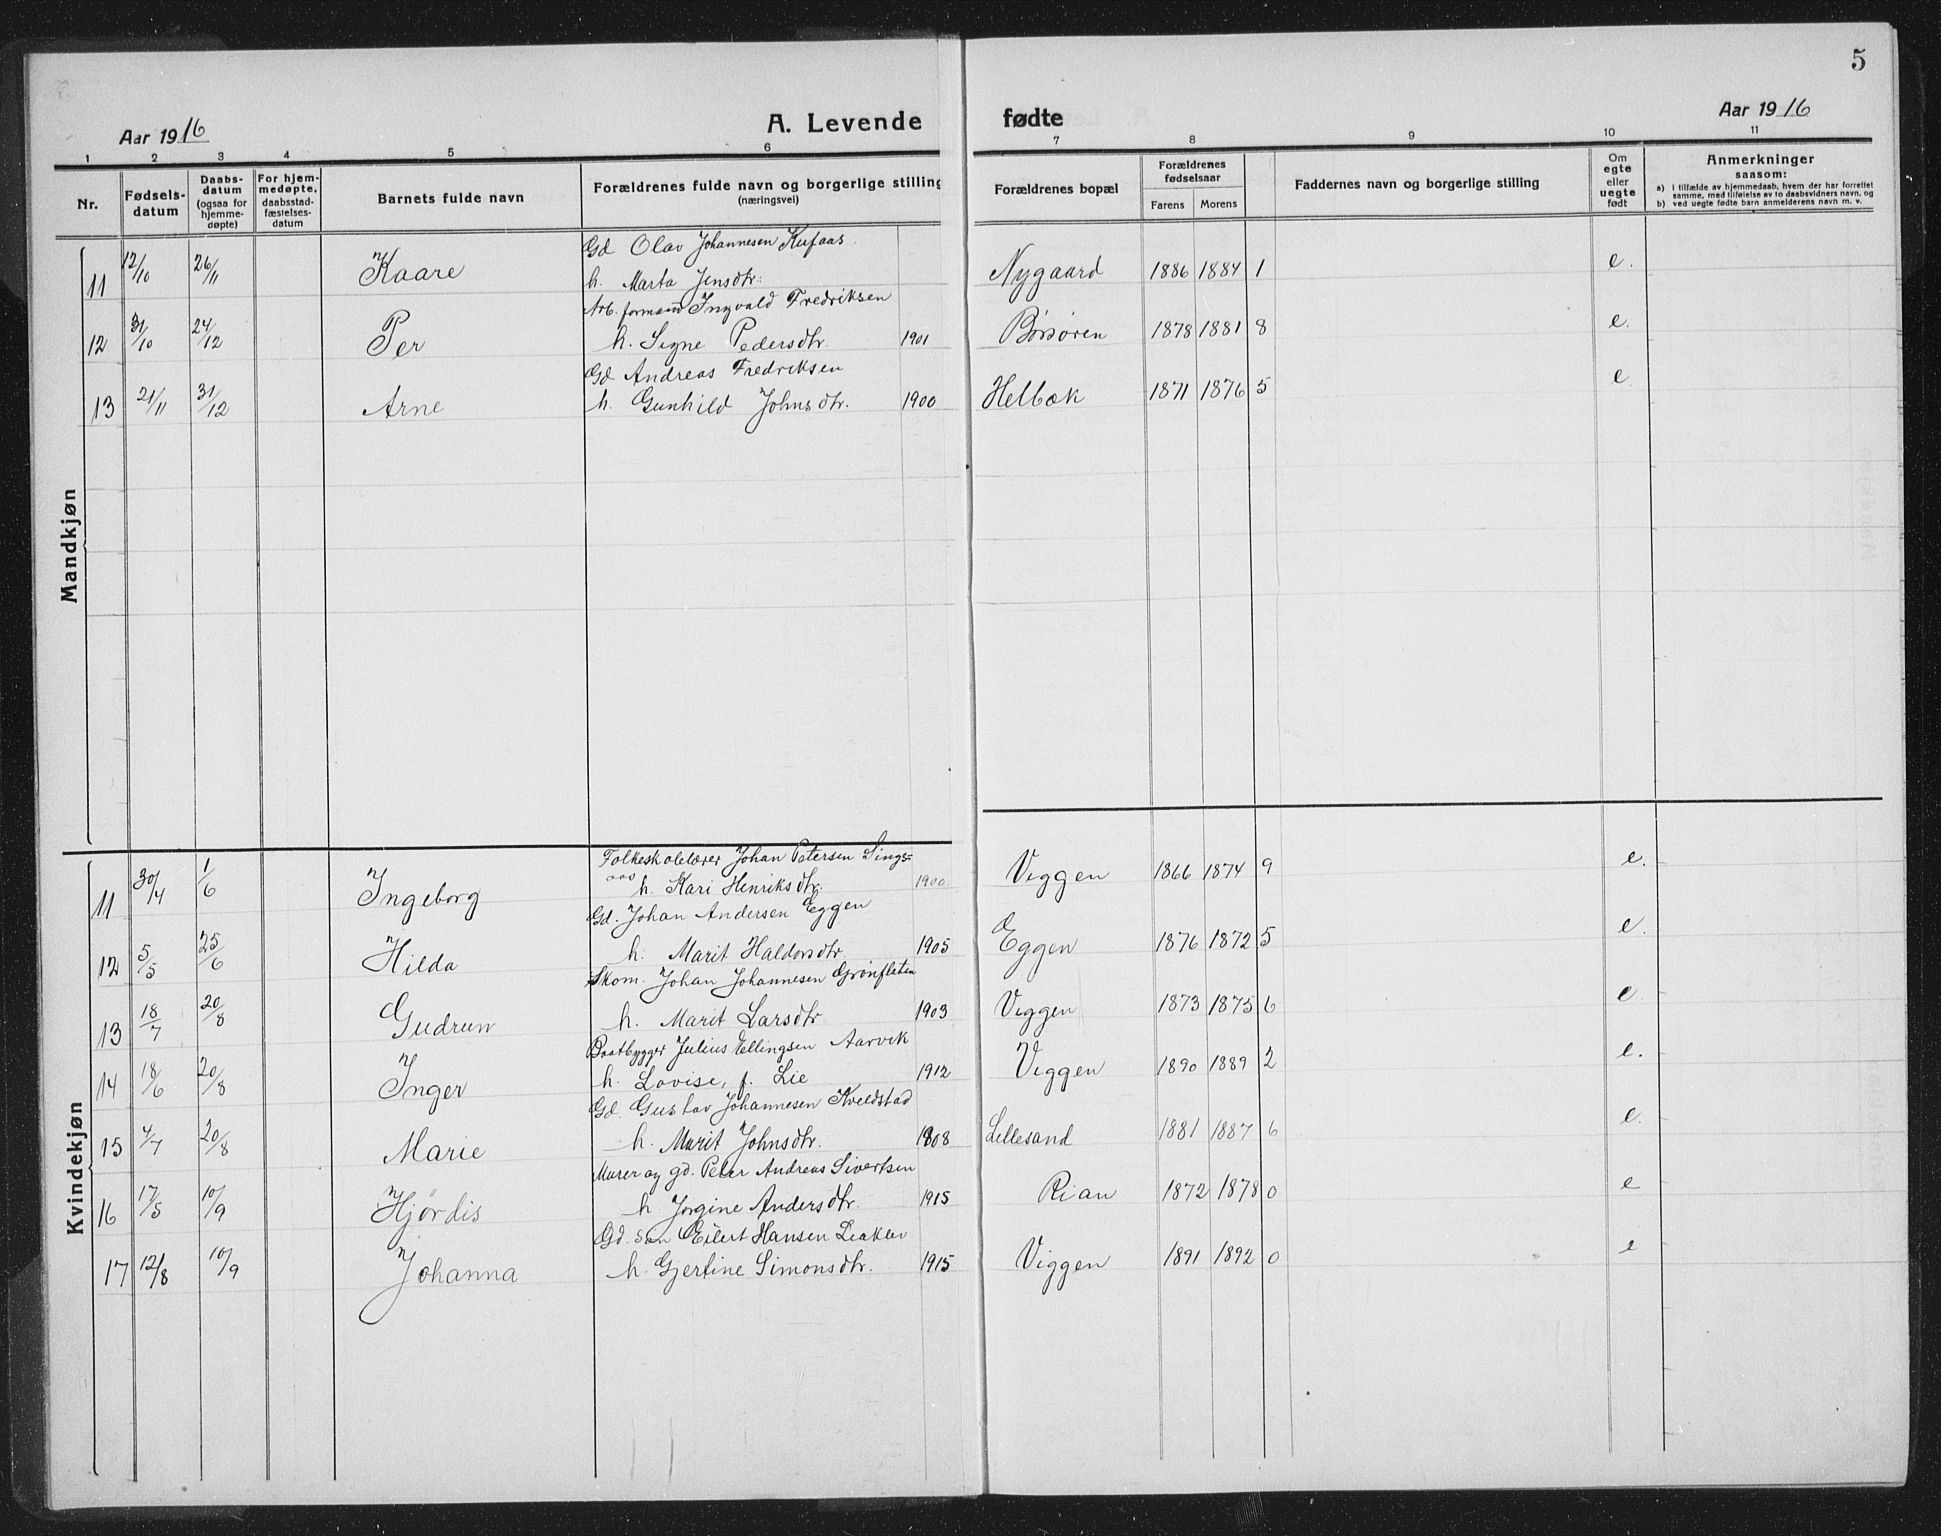 5
Aar 1916
A. Levende fødte
Aar 1916
1 2 3 4 5 6 7 8 9 10 11
Nr.
Fødsels-
datum
Daabs-
datum
(ogsaa for
hjemme-
døpte)
For hjem-
medøpte,
daabsstad-
fæstelses-
datum
Barnets fulde navn
Forældrenes fulde navn og borgerlige stilling
(næringsvei)
Forældrenes bopæl
Forældrenes
fødselsaar
Farens Morens
Faddernes navn og borgerlige stilling
Om
egte
eller
uegte
født
Anmerkninger
saasom:
a) i tilfælde av hjemmedaab, hvem der har forrettet
samme, med tilføielse av to daabsvidners navn, og
b) ved uegte fødte barn anmelderens navn m. v.
Mandkjøn
Gd Olav Johannesen Kufaas
11 12/10 26/11 Kaare h. Marta Jensdtr. Nygaard 1886 1884 1 e.
Arb. formand Ingvald Fredriksen
12 31/10 24/12 Per h. Signe Pedersdtr. 1901 Börsøren 1878 1881 8 e.
Gd Andreas Fredriksen
13 21/11 31/12 Arne h. Gunhild Johnsdtr. 1900 Helbæk 1871 1876 5 e
Kvindekjøn
Folkeskolelærer Johan Petersen Sings=
aas
11 30/4 1/6 Ingeborg h. Kari Henriksdtr. 1900 Viggen 1866 1874 9 e.
Gd. Johan Andersen Eggen
12 5/5 25/6 Hilda h. Marit Haldorsdtr. 1905 Eggen 1876 1872 5 e.
Skom. Johan Johannesen Grønflaten
13 18/7 20/8 Gudrun h. Marit Larsdtr 1903 Viggen 1873 1875 6 e
Baatbygger Julius Ellingsen Aarvik
14 18/6 20/8 Inger h. Lovise, f. Lie 1912 Viggen 1890 1889 2 e.
Gd. Gustav Johannesen Kveldstad
15 4/7 20/8 Marie h. Marit Johnsdtr. 1908 Lillesand 1881 1887 6 e.
Murer og gd. Peter Andreas Sivertsen
16 17/5 10/9 Hjørdis h. Jorgine Andersdtr. 1915 Rian 1872 1878 0 e
Gd. søn Eilert Hansen Leaklev
17 12/8 10/9 Johanna h. Gjertine Simonsdtr. 1915 Viggen 1891 1892 0 e